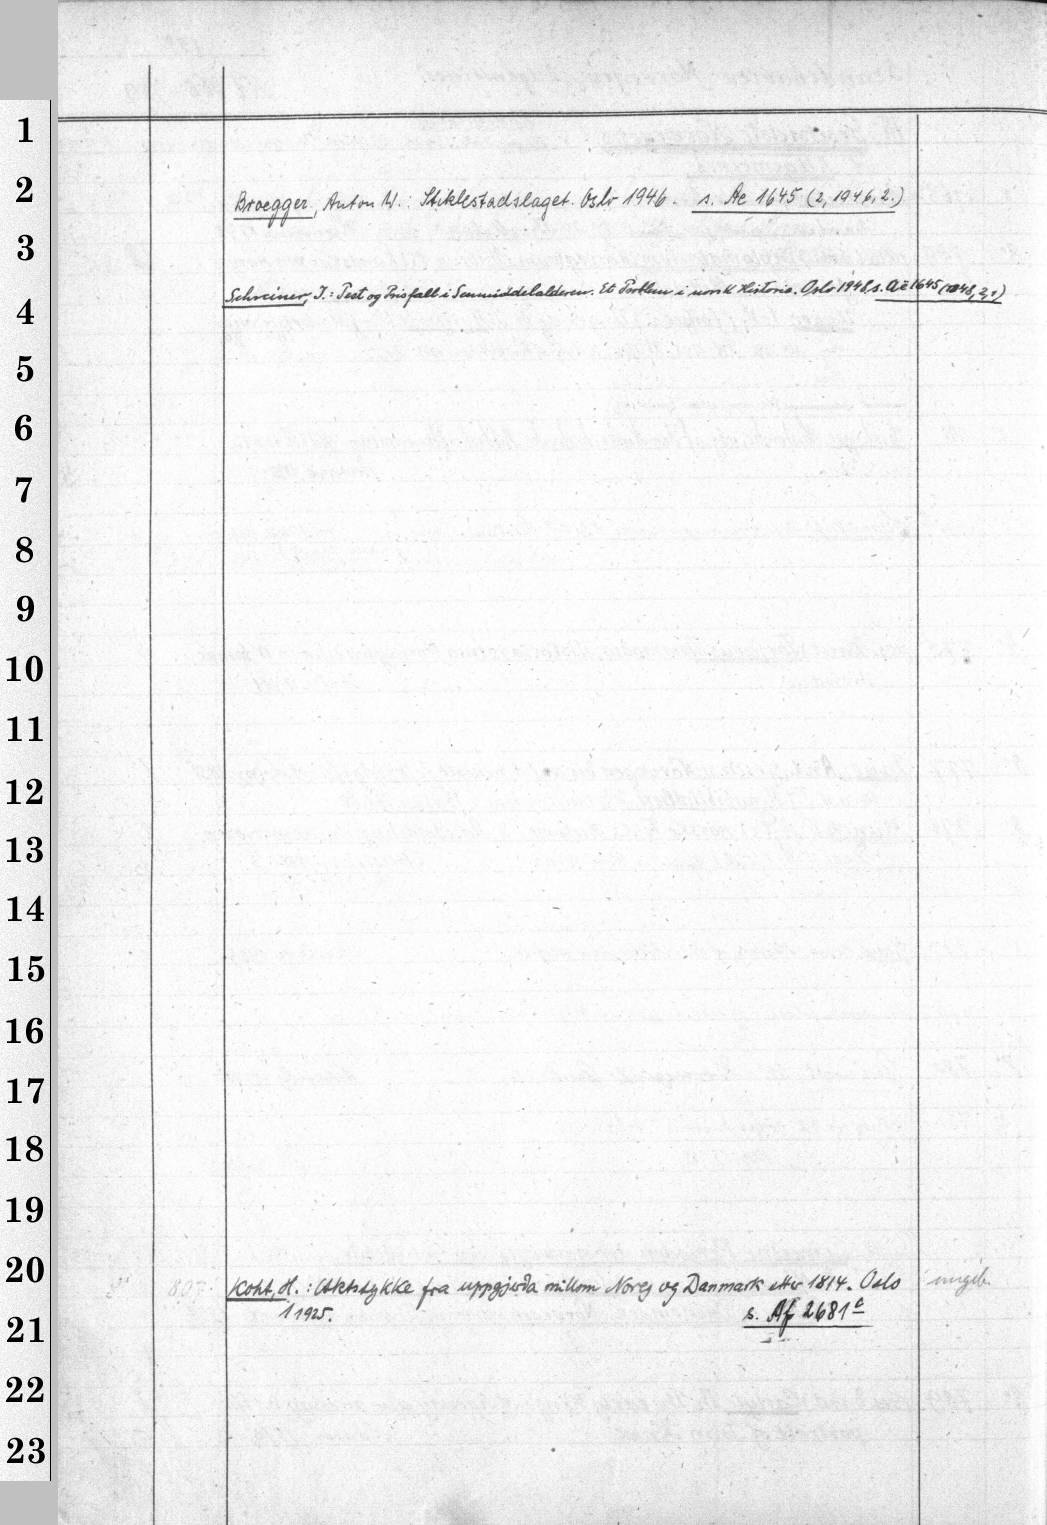 1
2
Broegger, Anton W.: Stiklestadslaget. Oslo 1946. s. Ae 1645 (2, 1946, 2.)
3
Schreiner, J.: Pest og Prisfall i Senmiddelalderen. Et Problem i norsk Historie. Oslo 1948. s. Ae 1645 (1948, 2, 1)
4
5
6
7
8
9
10
11
12
13
14
15
16
17
18
19
20
807. Koht, H.: Aktstykke fra uppgjerda millom Noreg og Danmark etter 1814. Oslo ungeb.
1925. s. Af 2681ᵉ
21
22
23